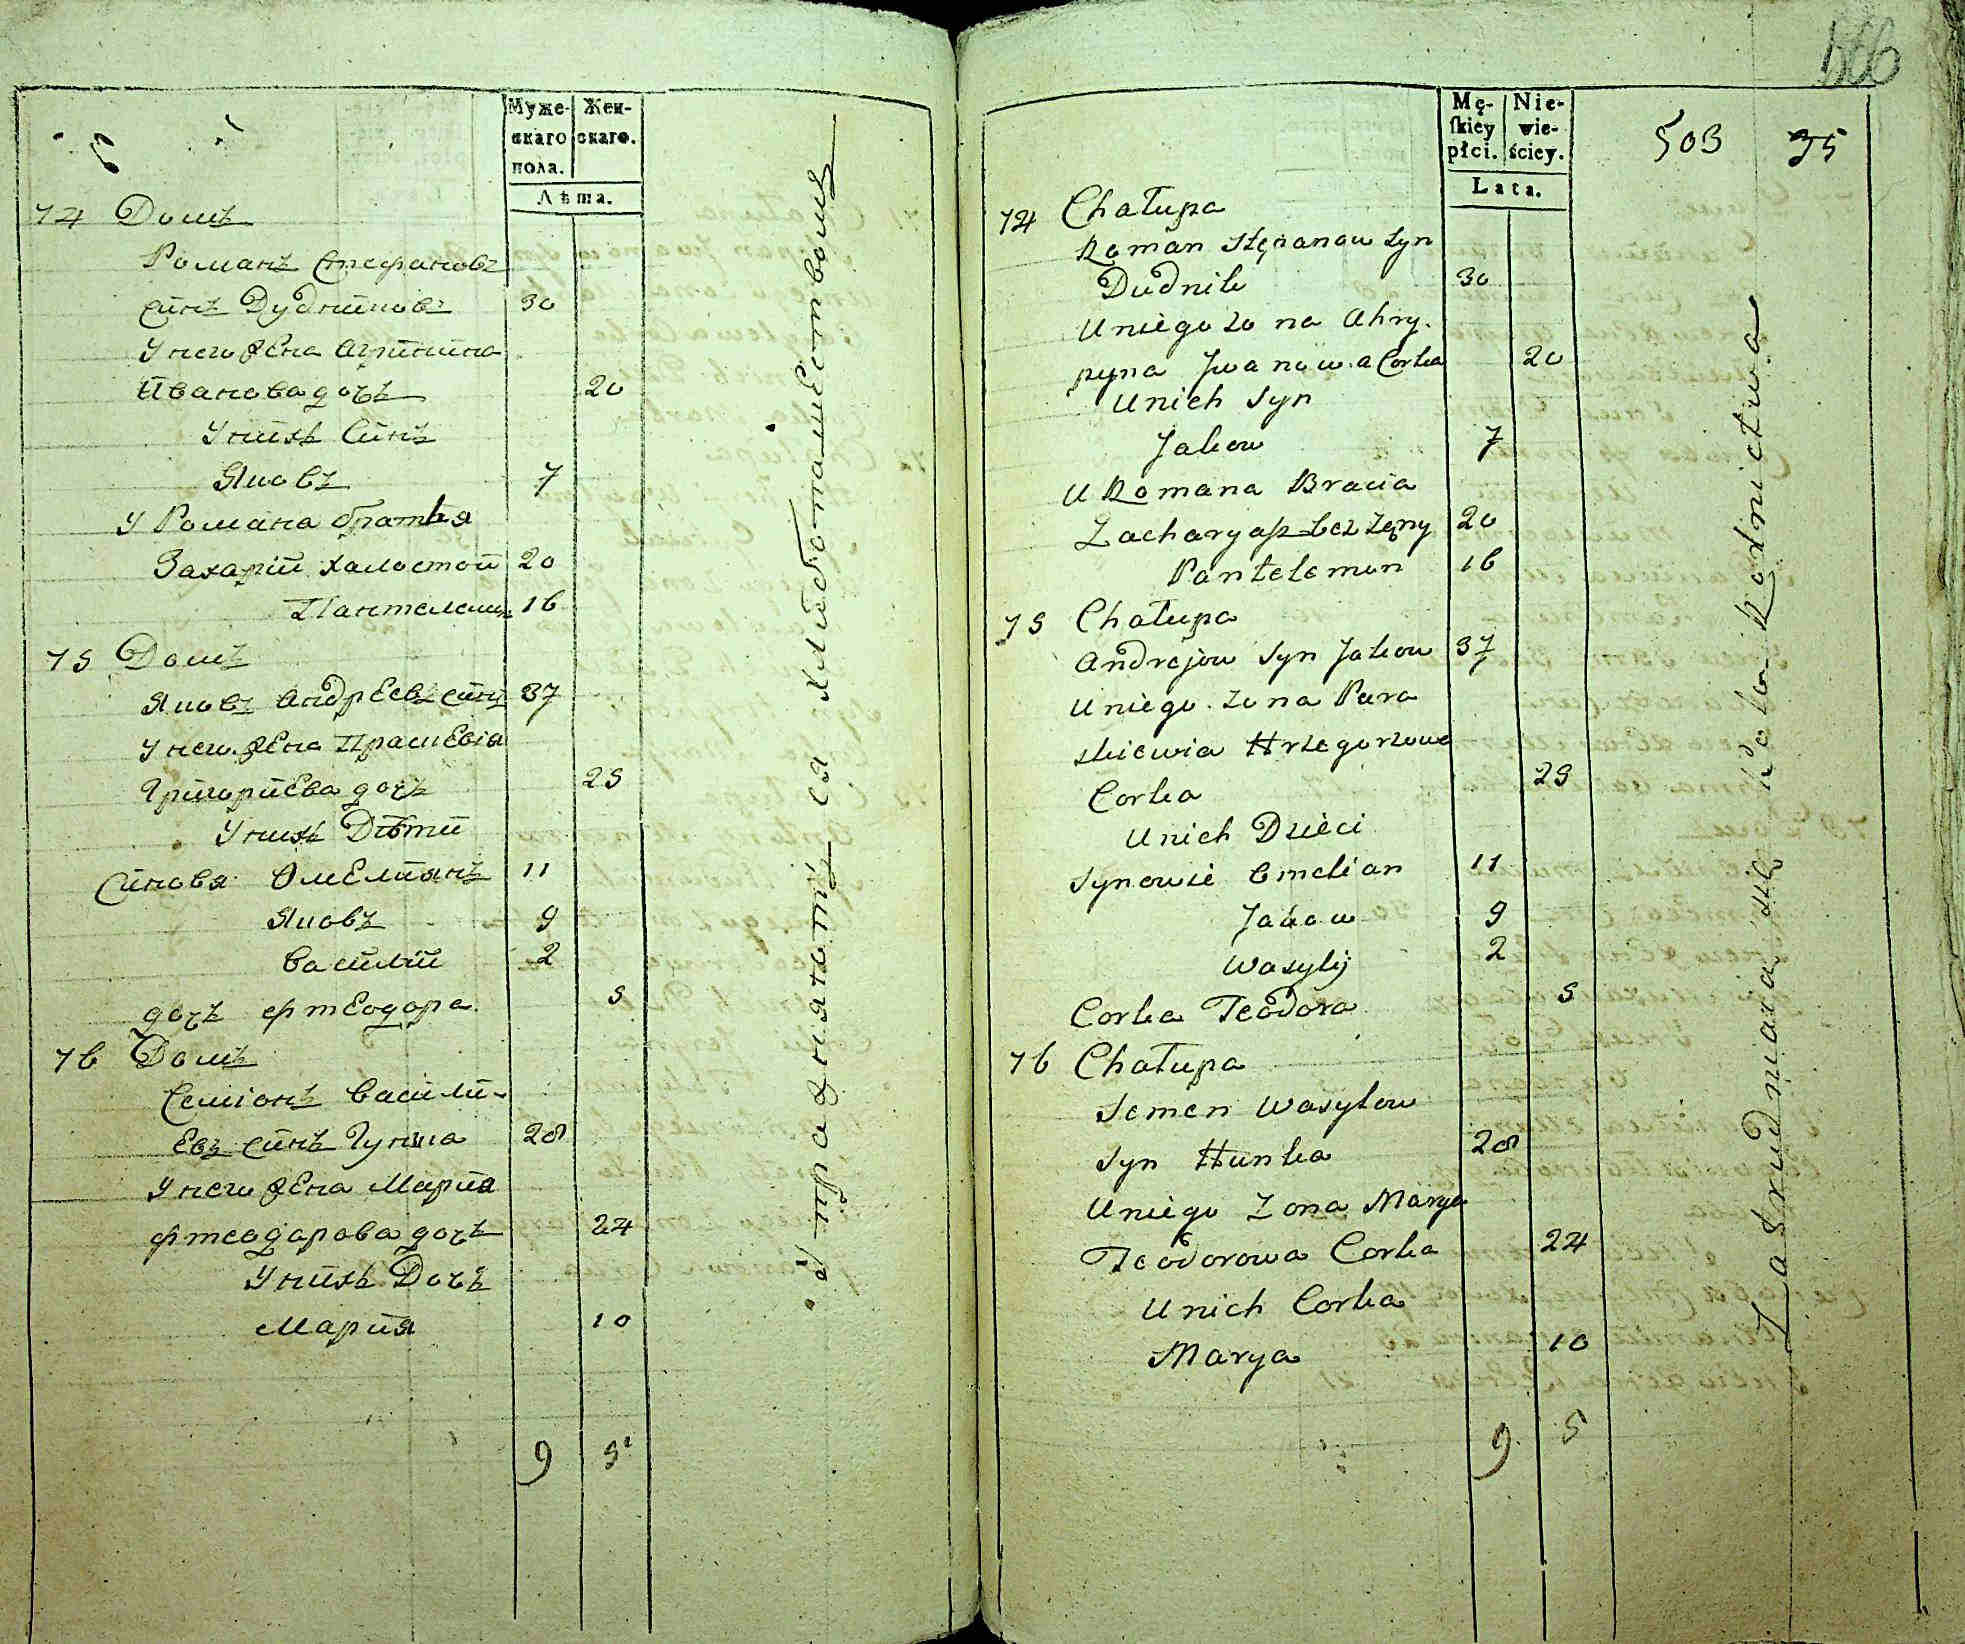 Муже-
скаго
пола.
Жен-
скаго.
Лѣта.
74 Домъ
Романъ Стефановъ
синъ Дудниковъ 30
У него жена Агрипина
Иванова дочь 20
У нихъ Синъ
Яковъ 7
У Романа братья
Захарій халостой 20
Пантелемон 16
75 Домъ
Яковъ Андрѣевъ синъ 37
У него жена Праскевія
Григориева дочь 25
У нихъ Дѣти
Синовя Омелиянъ 11
Яковъ 9
Василий 2
дочь Фтеодора 5
76 Домъ
Семіонъ Васили-
евъ синъ Гунка 28
У него жена Мария
Фтеодарова дочь 24
У нихъ Дочь
Мария 10
9 5
и тражняютця хлиботамеством
566
503 35
Mę-
skiey
płci.
Nie-
wie-
ściey.
Lata.
74 Chałupa
Roman Stepanow Syn
Dudnik 30
U niego żona Ahry-
pyna Jwanowa Corka 20
U nich Syn
Jakow 7
U Romana Bracia
Zacharyasz bez żęny 20
Pantelemon 16
75 Chałupa
Andrejow Syn Jakow 37
U niego żona Para
skiewia Hrzegorzowa
Corka 25
U nich Dzieci
Synowie Emelian 11
Jakow 9
Wasylij 2
Corka Teodora 5
76 Chałupa
Semen Wasylow
Syn Hunka 28
U niego Zona Marya
Teodorowa Corka 24
U nich Corka
Marya 10
9 5
Zatrudniaią się koło Rolnictwa